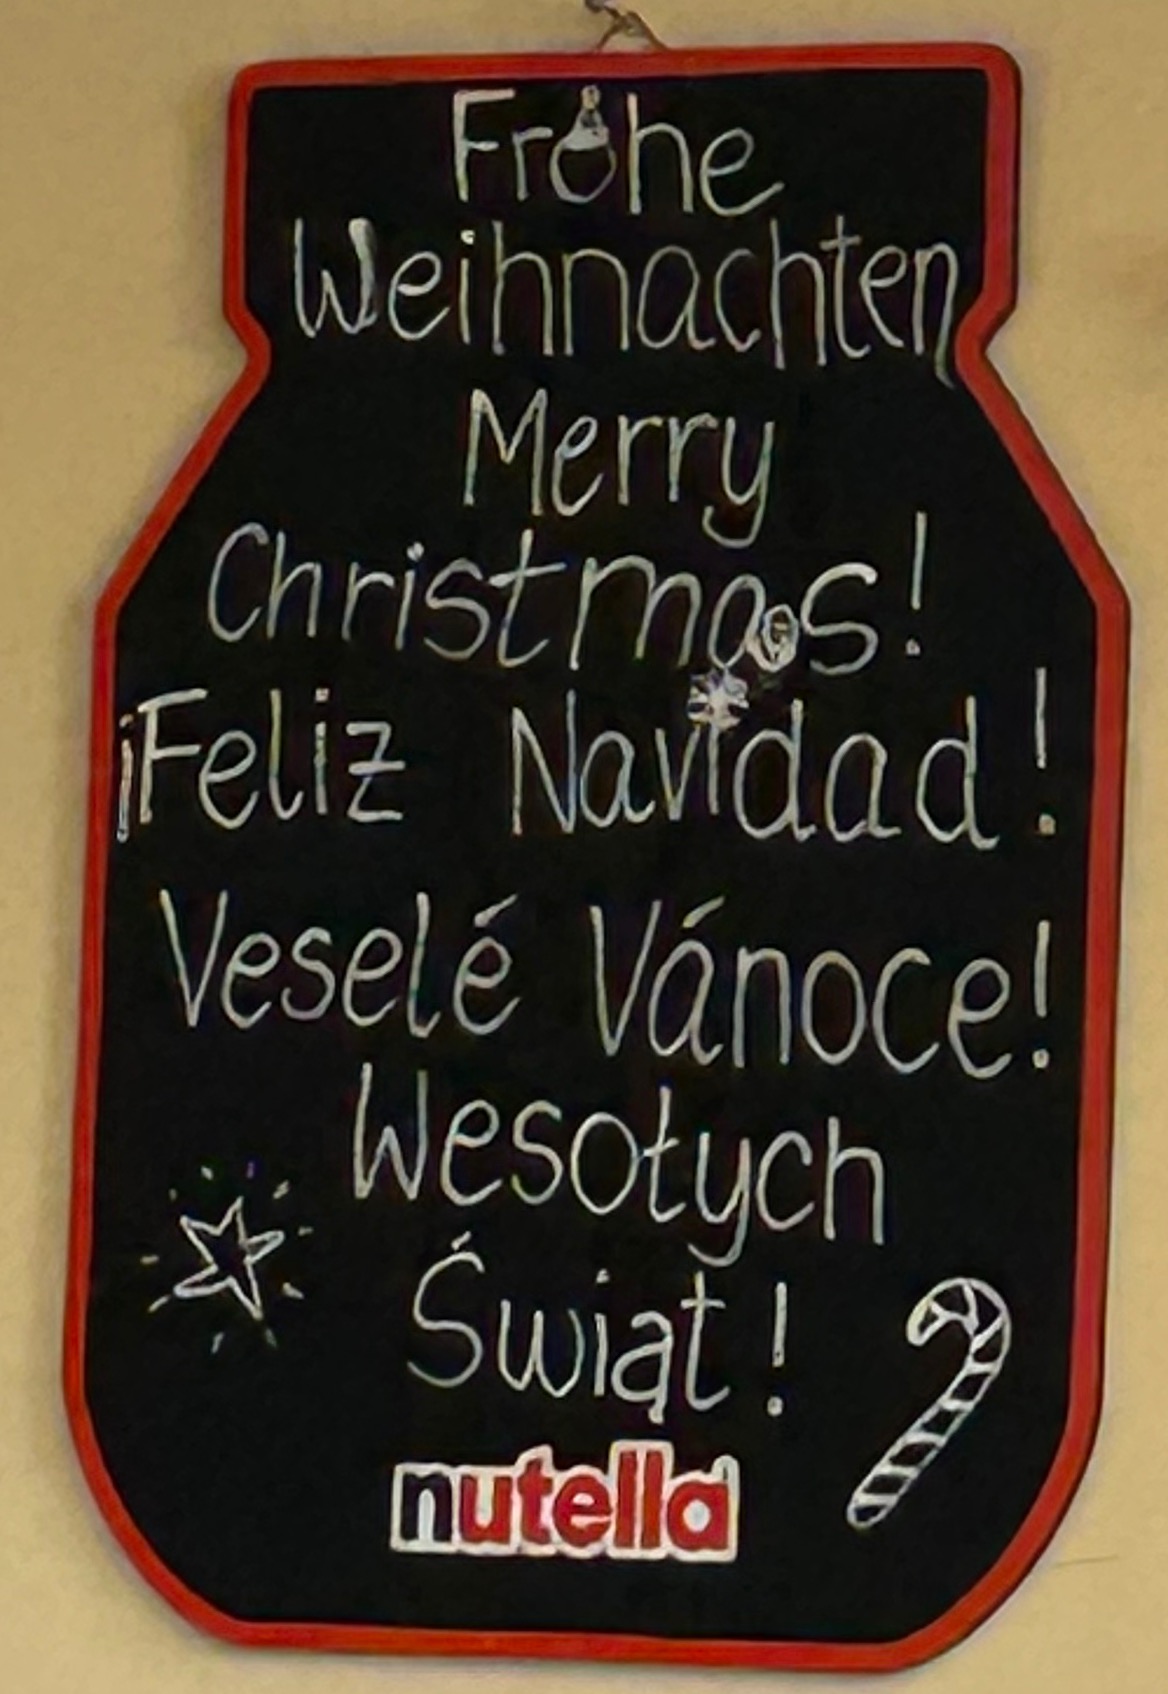 Frohe
Weihnachten
Merry
Christmas!
¡Feliz Navidad!
Veselé Vánoce!
Wesołych
Świąt!
nutella